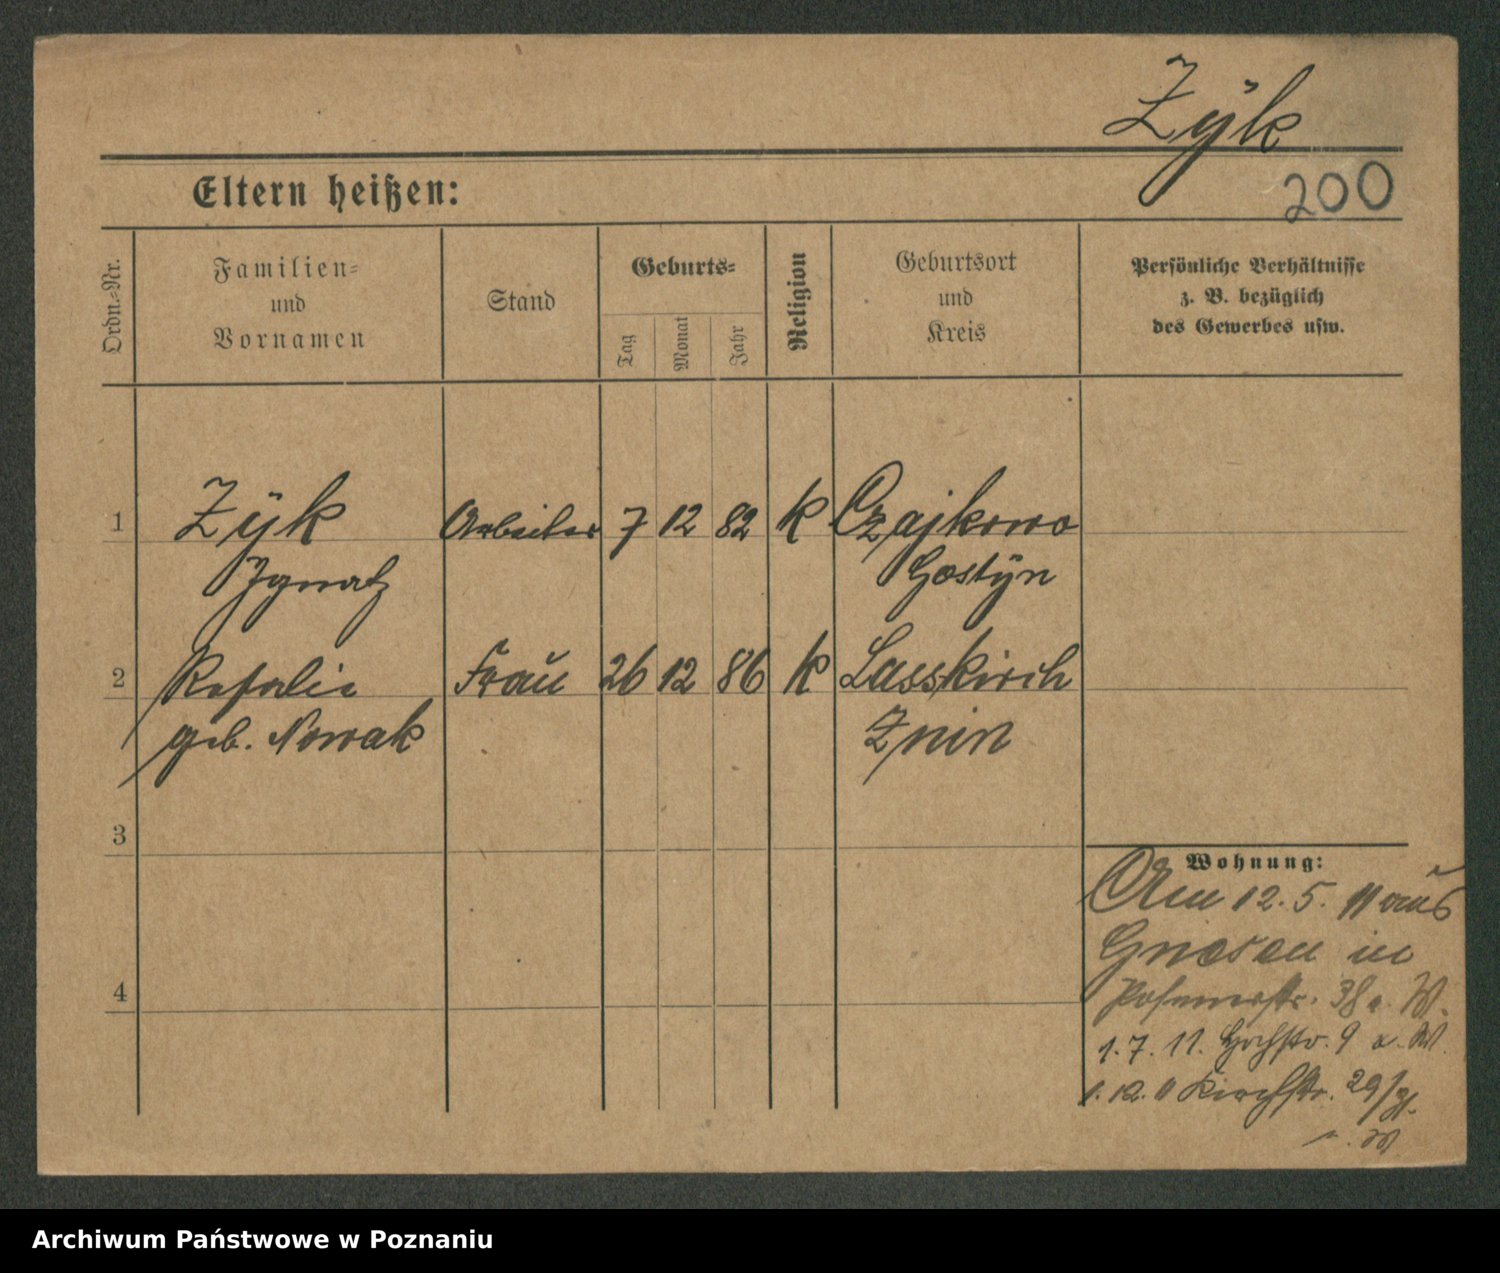 Zÿk
Eltern heißen:
200
Ordn.-Nr.
Familien-
und
Vornamen
Stand
Geburts-
Tag
Monat
Jahr
Religion
Geburtsort
und
Kreis
Persönliche Verhältnisse
z. B. bezüglich
des Gewerbes usw.
1 Zÿk Arbeiter 7 12 82 k Czajkowo
Ignatz Gostÿn
2 Rosalie Frau 26 12 86 k Lasskirch
geb. Nowak Znin
3
Wohnung:
Am 12. 5. 11 aus
Gnesen in
4
Posenerstr. 38 a. W.
1. 7. 11. Hochstr. 9 a. W.
1. 12. 11 Kirchstr. 29/
Archiwum Państwowe w Poznaniu